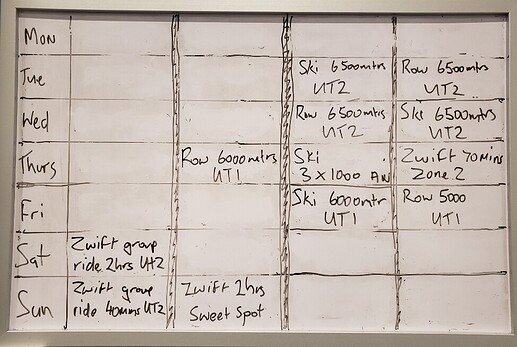 Mon
Tue
Ski 6500mtrs
UT2
Row 6500mtrs
UT2
Wed
Row 6500mtrs
UT2
Ski 6500mtrs
UT2
Thurs
Row 6000mtrs
UT1
Ski
3 x 1000 AN
Zwift 70mins
Zone 2
Fri
Ski 6000mtr
UT1
Row 5000
UT1
Sat
Zwift group
ride 2hrs Ut2
Sun
Zwift group
ride 40mms UT2
Zwift 2hrs
Sweet Spot